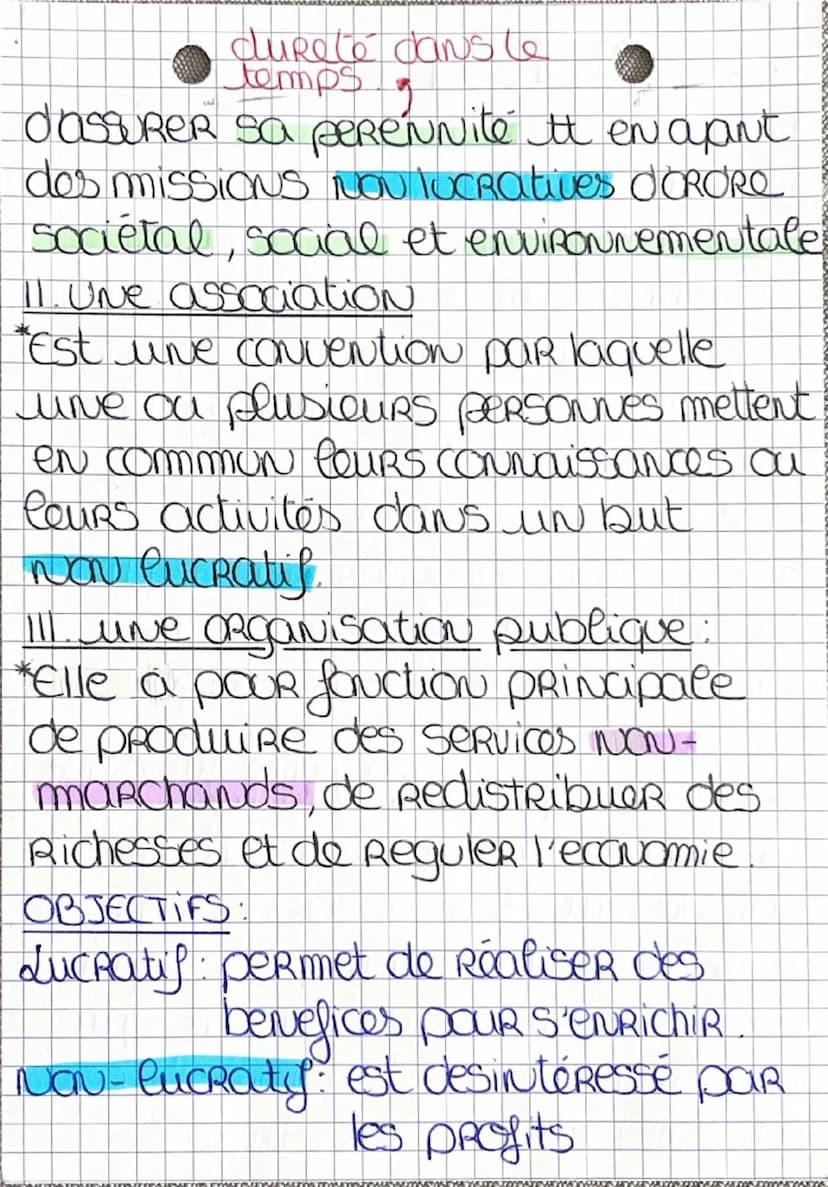 dureté dans le
temps
d'assurer sa perennité tt en ayant
des missions non lucratives d'ordre
sociétal, social et environnementale
II. Une association
*Est une convention par laquelle
une ou plusieurs personnes mettent
en commun leurs connaissances ou
leurs activités dans un but
non lucratif.
III. une organisation publique:
*Elle a pour fonction principale
de produire des services non-
marchands, de redistribuer des
richesses et de reguler l'economie.
OBJECTIFS:
Lucratif: permet de réaliser des
benefices pour s'enrichir.
Non-lucratif: est desintéressé par
les profits